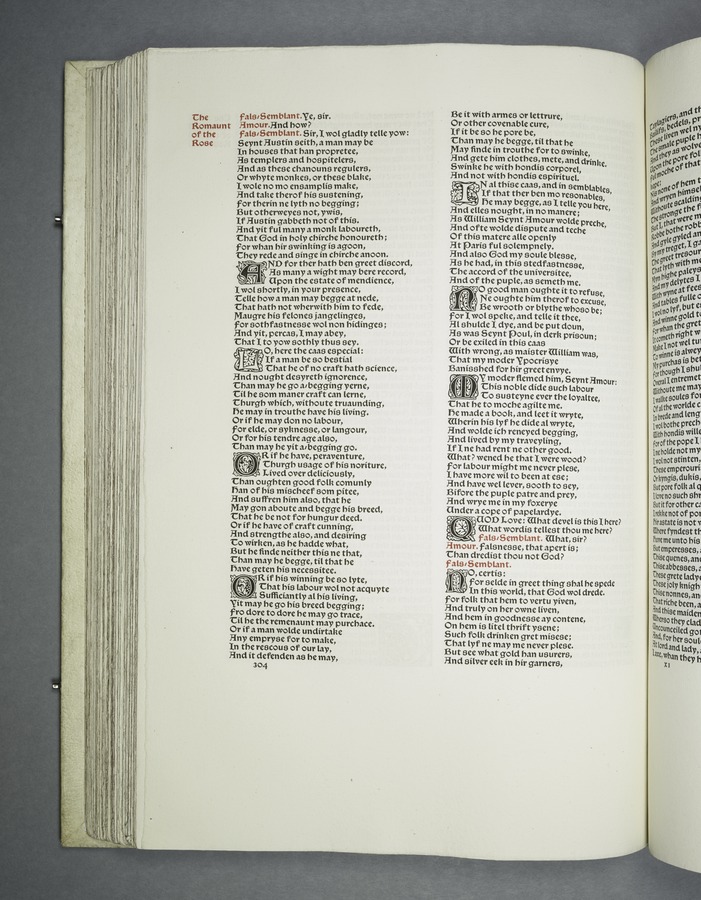 The
Romaunt
of the
Rose
Fals-Semblant. Ye, sir.
Amour. And how?
Fals-Semblant. Sir, I wol gladly telle yow:
Seynt Austin seith, a man may be
In houses that han propretee,
As templers and hospitelers,
And as these chanouns regulers,
Or whyte monkes, or these blake,
I wole no mo ensamplis make,
And take therof his sustening,
For therin ne lyth no begging;
But otherweyes not, ywis,
If Austin gabbeth not of this.
And yit ful many a monk laboureth,
That God in holy chirche honoureth;
For whan hir swinking is agoon,
They rede and singe in chirche anoon.
AND for ther hath ben greet discord,
As many a wight may bere record,
Upon the estate of mendience,
I wol shortly, in your presence,
Telle how a man may begge at nede,
That hath not wherwith him to fede,
Maugre his felones jangelinges,
For sothfastnesse wol non hidinges;
And yit, percas, I may abey,
That I to yow sothly thus sey.
LO, here the caas especial:
If a man be so bestial
That he of no craft hath science,
And nought desyreth ignorence,
Than may he go a-begging yerne,
Til he som maner craft can lerne,
Thurgh which, without truaunding,
He may in trouthe have his living.
Or if he may don no labour,
For elde, or syknesse, or langour,
Or for his tendre age also,
Than may he yit a-begging go.
OR if he have, peraventure,
Thurgh usage of his noriture,
Lived over deliciously,
Than oughten good folk comunly
Han of his mischeef som pitee,
And suffren him also, that he
May gon aboute and begge his breed,
That he be not for hungur deed.
Or if he have of craft cunning,
And strengthe also, and desiring
To wirken, as he hadde what,
But he finde neither this ne that,
Than may he begge, til that he
Have geten his necessitee.
OR if his winning be so lyte,
That his labour wol not acquyte
Sufficiantly al his living,
Yit may he go his breed begging;
Fro dore to dore he may go trace,
Til he the remenaunt may purchace.
Or if a man wolde undirtake
Any empryse for to make,
In the rescous of our lay,
And it defenden as he may,
304
Be it with armes or lettrure,
Or other covenable cure,
If it be so he pore be,
Than may he begge, til that he
May finde in trouthe for to swinke,
And gete him clothes, mete, and drinke.
Swinke he with hondis corporel,
And not with hondis espirituel.
IN al thise caas, and in semblables,
If that ther ben mo resonables,
He may begge, as I telle you here,
And elles nought, in no manere;
As William Seynt Amour wolde preche,
And ofte wolde dispute and teche
Of this matere alle openly
At Paris ful solempnely.
And also God my soule blesse,
As he had, in this stedfastnesse,
The accord of the universitee,
And of the puple, as semeth me.
NO good man oughte it to refuse,
Ne oughte him therof to excuse,
Be wrooth or blythe whoso be;
For I wol speke, and telle it thee,
Al shulde I dye, and be put doun,
As was Seynt Poul, in derk prisoun;
Or be exiled in this caas
With wrong, as maister William was,
That my moder Ypocrisye
Banisshed for hir greet envye.
MY moder flemed him, Seynt Amour:
This noble dide such labour
To susteyne ever the loyaltee,
That he to moche agilte me.
He made a book, and leet it wryte,
Wherin his lyf he dide al wryte,
And wolde ich reneyed begging,
And lived by my traveyling,
If I ne had rent ne other good.
What? wened he that I were wood?
For labour might me never plese,
I have more wil to been at ese;
And have wel lever, sooth to sey,
Bifore the puple patre and prey,
And wrye me in my foxerye
Under a cope of papelardye.
QUOD Love: What devel is this I here?
What wordis tellest thou me here?
Fals-Semblant. What, sir?
Amour. Falsnesse, that apert is;
Than dredist thou not God?
Fals-Semblant.
NO, certis:
For selde in greet thing shal he spede
In this world, that God wol drede.
For folk that hem to vertu yiven,
And truly on her owne liven,
And hem in goodnesse ay contene,
On hem is litel thrift ysene;
Such folk drinken gret misese;
That lyf ne may me never plese.
But see what gold han usurers,
And silver eek in hir garners,